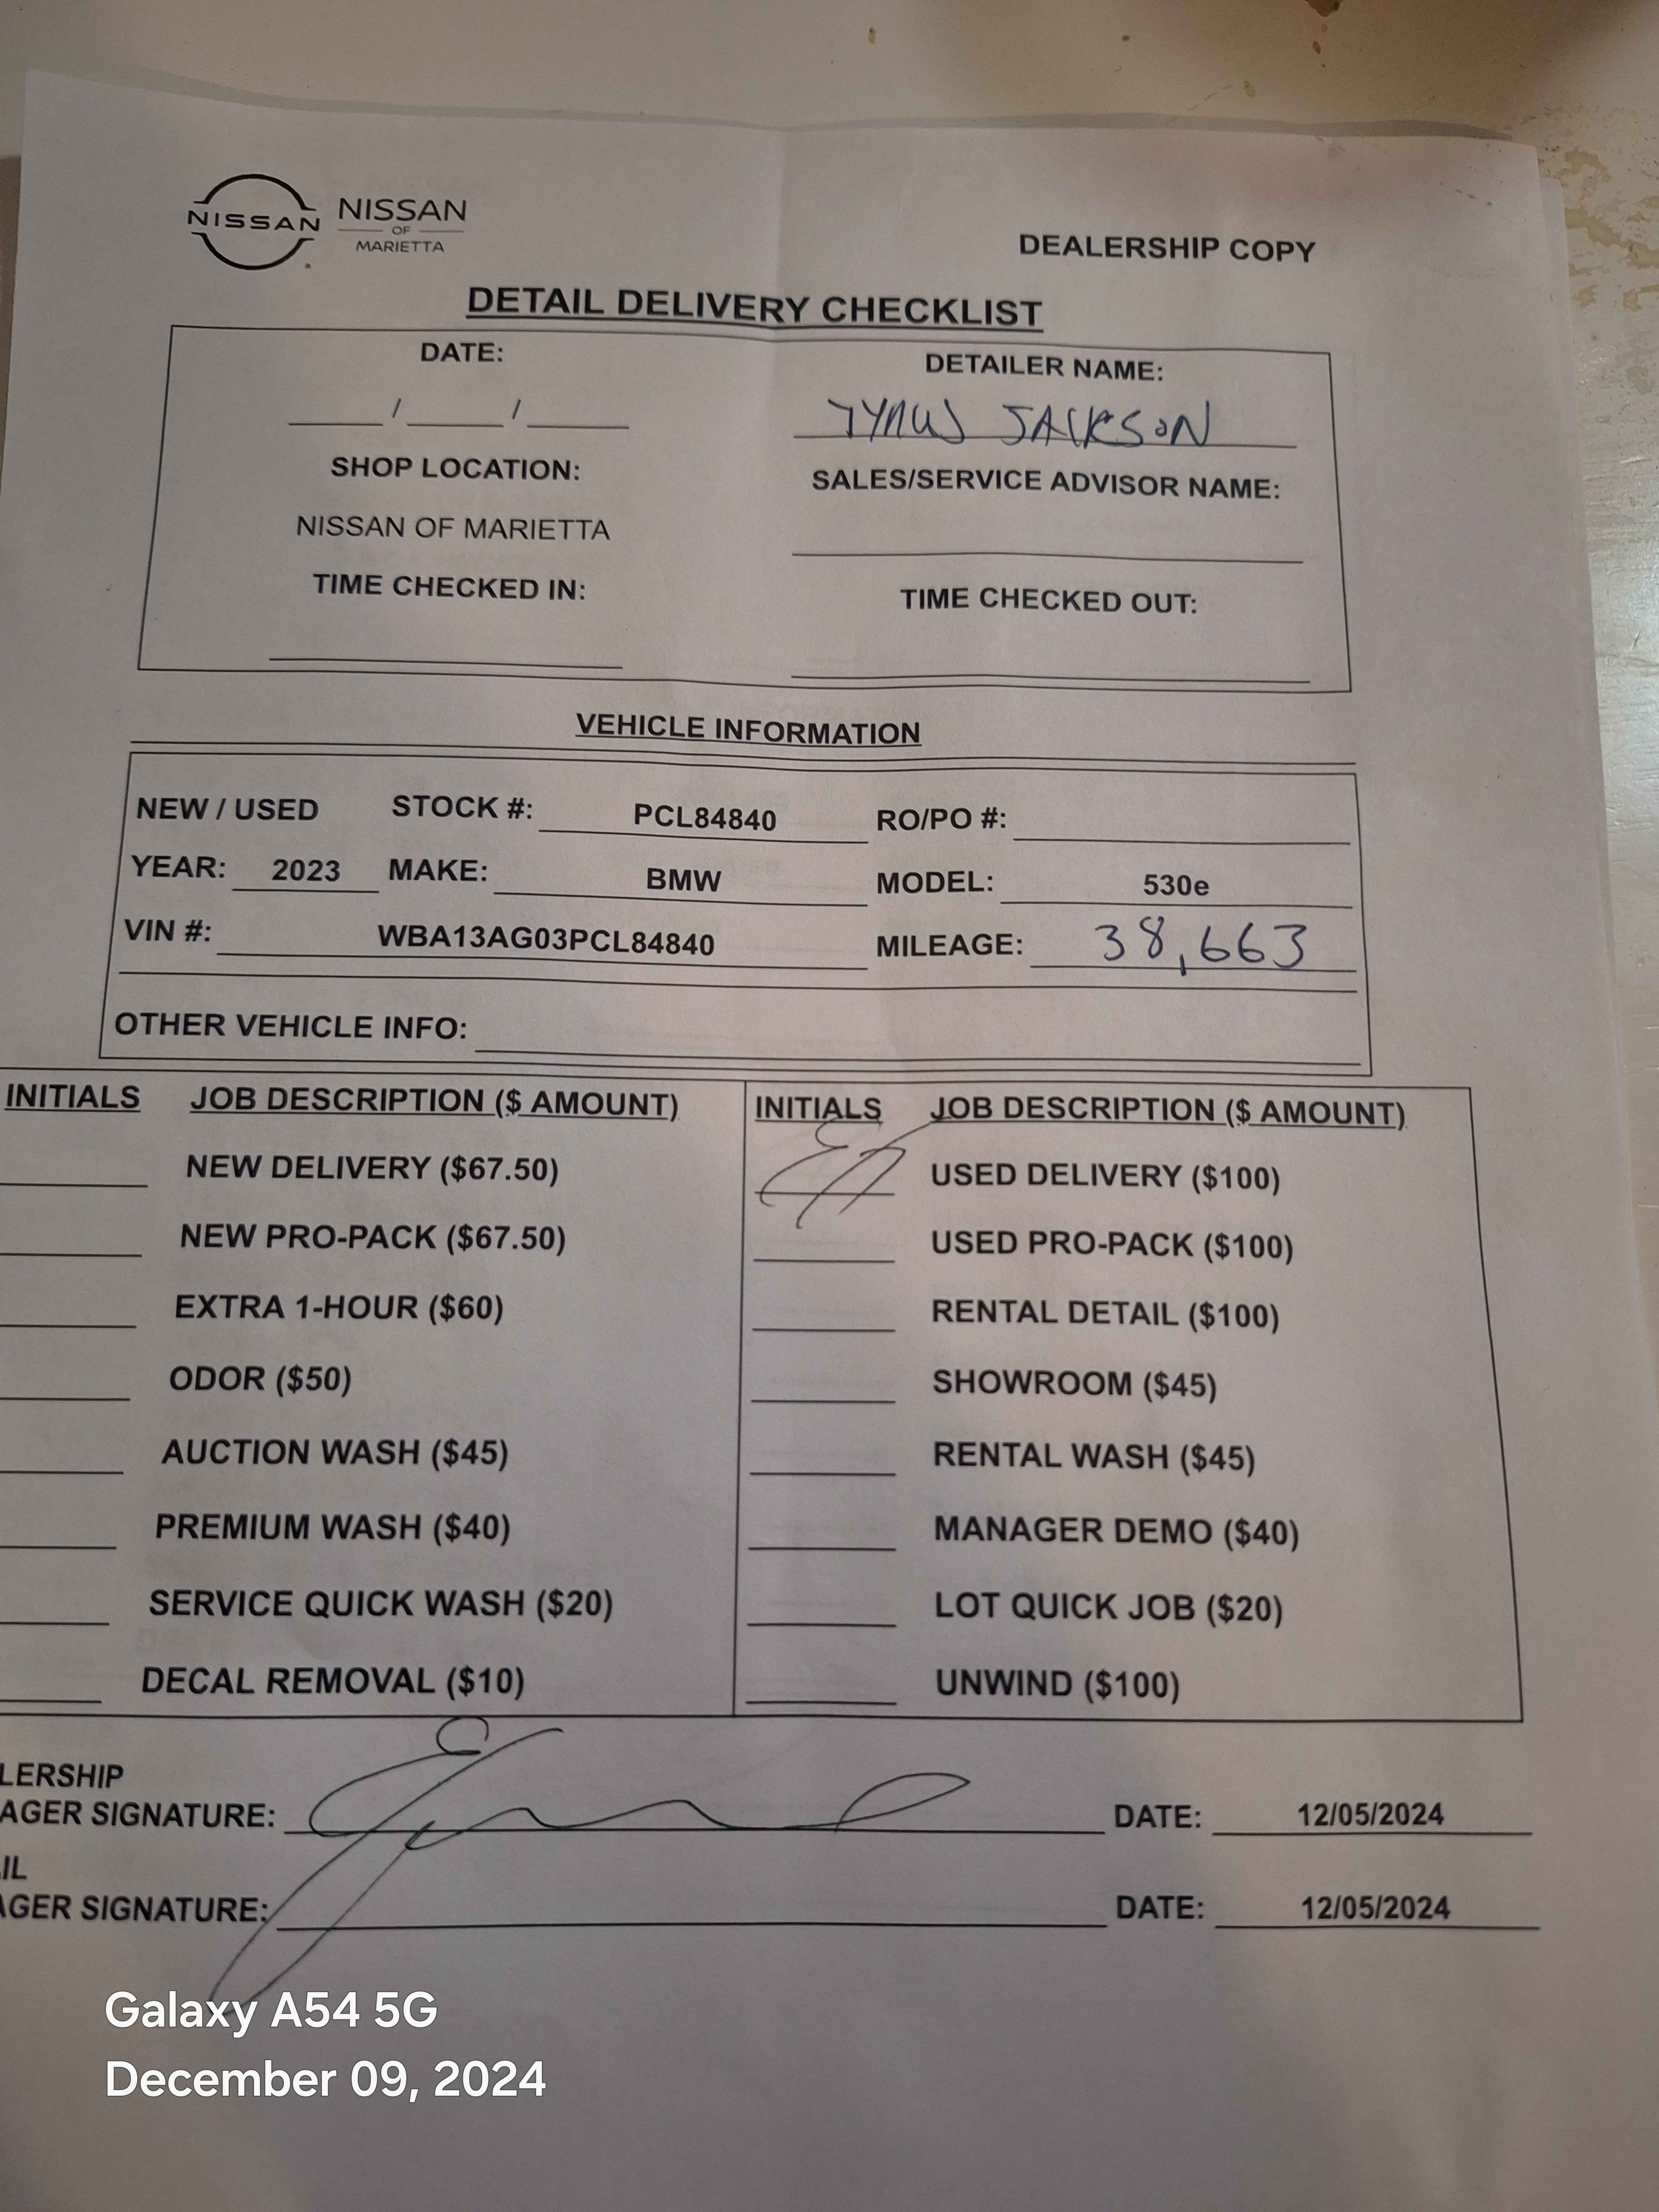 NISSAN NISSAN
OF
MARIETTA
DEALERSHIP COPY
DETAIL DELIVERY CHECKLIST
DATE: DETAILER NAME:
/ / JACKSON
SHOP LOCATION: SALES/SERVICE ADVISOR NAME:
NISSAN OF MARIETTA
TIME CHECKED IN: TIME CHECKED OUT:
VEHICLE INFORMATION
NEW / USED STOCK #: PCL84840 RO/PO #:
YEAR: 2023 MAKE: BMW MODEL: 530e
VIN #: WBA13AG03PCL84840 MILEAGE: 38,663
OTHER VEHICLE INFO:
INITIALS JOB DESCRIPTION ($ AMOUNT) INITIALS JOB DESCRIPTION ($ AMOUNT)
NEW DELIVERY ($67.50) USED DELIVERY ($100)
NEW PRO-PACK ($67.50) USED PRO-PACK ($100)
EXTRA 1-HOUR ($60) RENTAL DETAIL ($100)
ODOR ($50) SHOWROOM ($45)
AUCTION WASH ($45) RENTAL WASH ($45)
PREMIUM WASH ($40) MANAGER DEMO ($40)
SERVICE QUICK WASH ($20) LOT QUICK JOB ($20)
DECAL REMOVAL ($10) UNWIND ($100)
LERSHIP
AGER SIGNATURE: DATE: 12/05/2024
IL
AGER SIGNATURE: DATE: 12/05/2024
Galaxy A54 5G
December 09, 2024